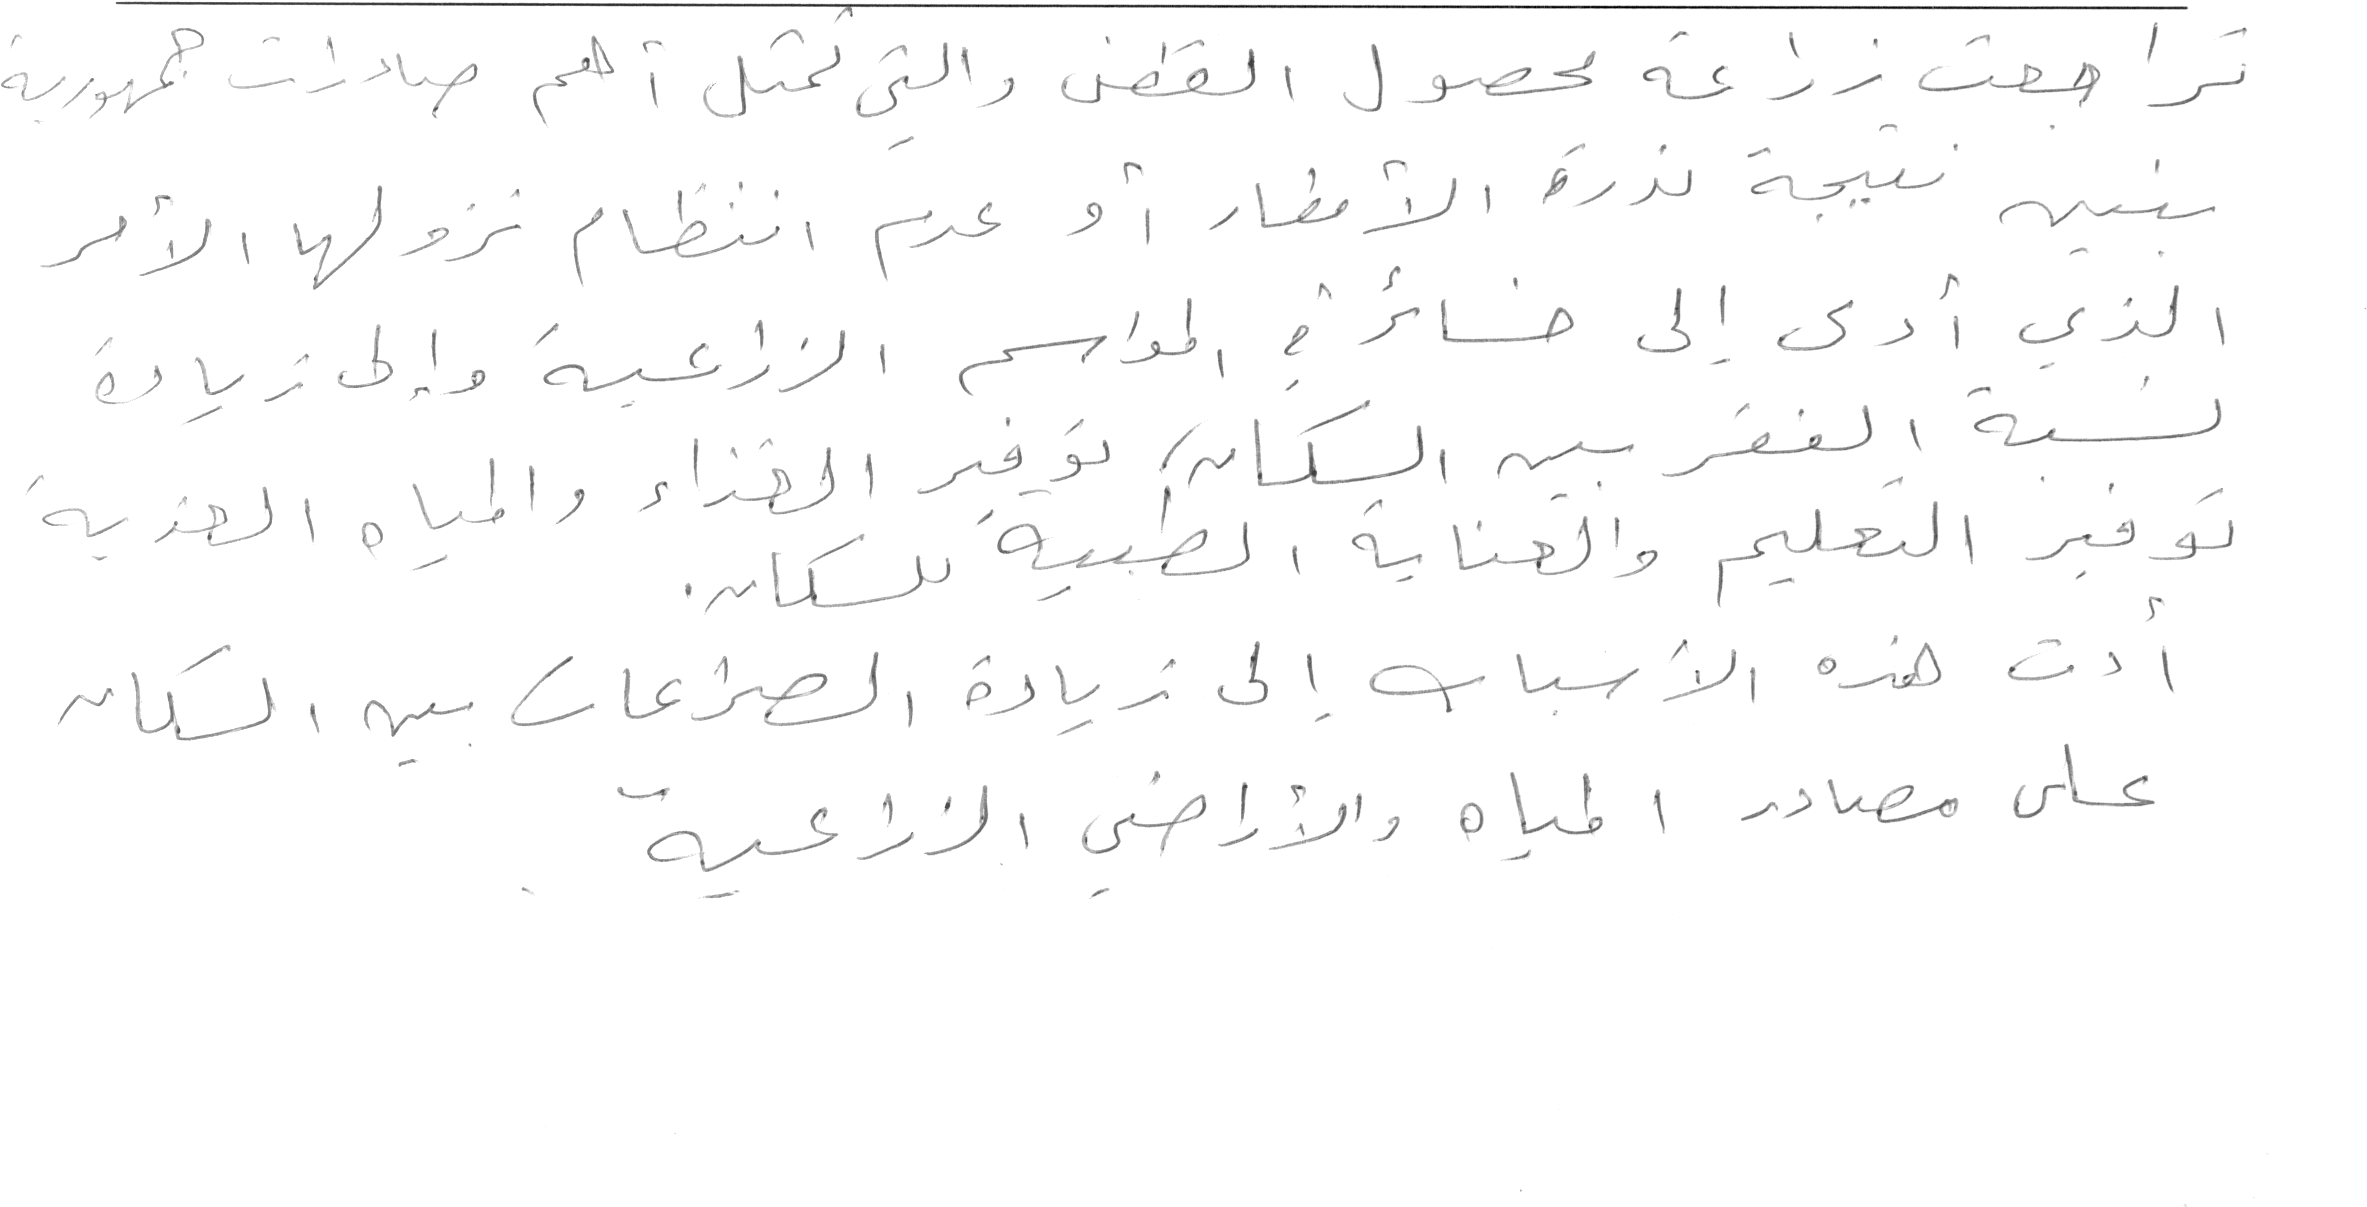 تراجعت زراعة محصول القطن والتي تمثل أهم صادرات جمهورية
بنين نتيجة ندرة الأمطار أو عدم انتظام نزولها الأمر
الذي أدى إلى خسائر في المواسم الزراعية وإلى زيادة
نسبة الفقر بين السكان، توفير الغذاء والمياه العذبة
توفير التعليم والعناية الطبية للسكان.
أدت هذه الأسباب إلى زيادة الصراعات بين السكان
على مصادر المياه والأراضي الزراعية.